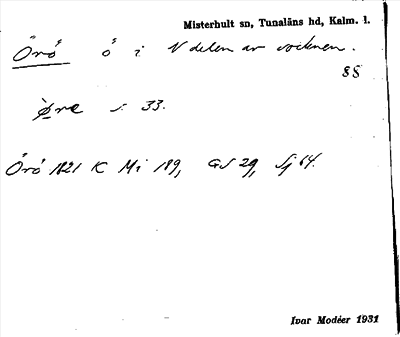 Misterhult sn, Tunaläns hd, Kalm. l.
Örö ö i N delen av socknen.
§§
Øre s. 33.
Örö 1821 K Mi 189, GS 29, Sj 64.
Ivar Modéer 1931